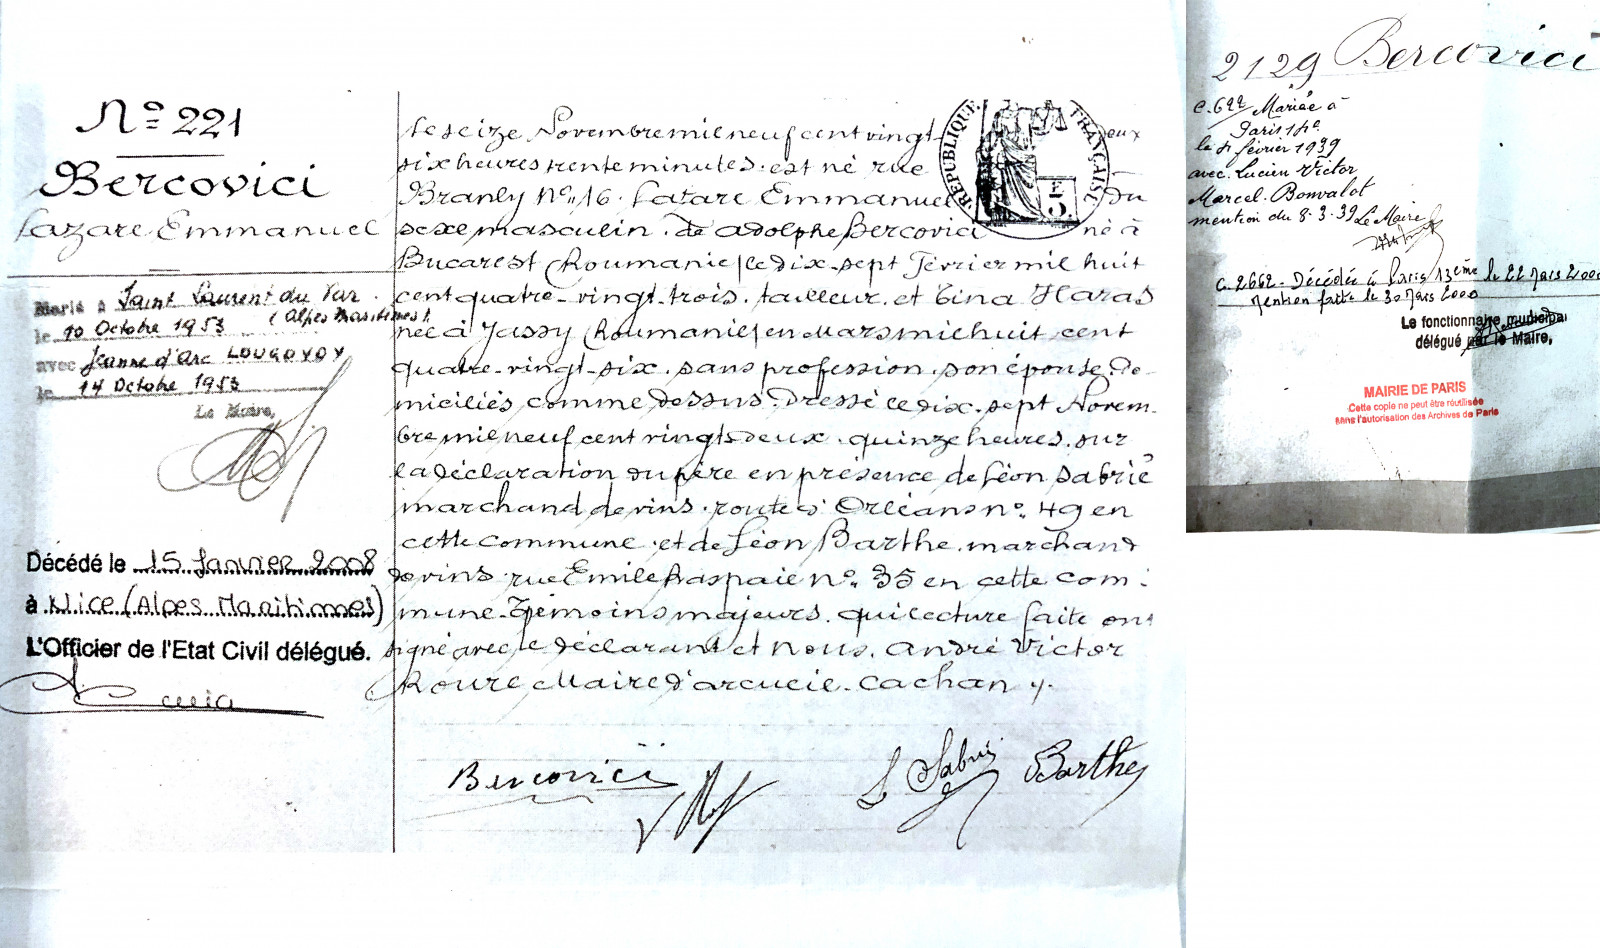 Nº 221
Bercovici
Lazare Emmanuel
Marié à Saint Laurent du Var
(Alpes Maritimes)
le 10 Octobre 1953
avec Jeanne d'Arc LOUGOVOY
le 14 Octobre 1953
Le Maire,
Décédé le 15 Janvier 2008
à Nice (Alpes Maritimes)
L'Officier de l'Etat Civil délégué.
Le seize Novembre mil neuf cent vingt eux
six heures trente minutes. est né rue
Branly Nº 16. Lazare Emmanuel du
sexe masculin. de Adolphe Bercovici né à
Bucarest (Roumanie) le dix-sept Février mil huit
cent quatre-vingt-trois. tailleur. et Tina Haras
née à Jassy (Roumanie) en Mars mil huit cent
quatre-vingt-six. sans profession. son épouse. do-
miciliés comme dessus. Dressé le dix-sept Novem-
bre mil neuf cent vingt-deux. quinze heures. sur
la déclaration du père en présence de Léon Sabrié
marchand de vins. route d'Orléans nº 49 en
cette commune. et de Léon Barthe. marchand
de vins. rue Emile Raspail nº 35 en cette com-
mune. Témoins majeurs. qui lecture faite ont
signé avec le déclarant et Nous. André Victor
Roure Maire d'Arcueil-Cachan
RÉPUBLIQUE FRANÇAISE
F
5
Bercovici
L Sabrié
Barthe
2129 Bercovici
C. 622 Mariée à
Paris 14e
février 1939
avec Lucien Victor
Marcel Bonvalot
mention du 8.3.39 Le Maire
C. 2662 - Décédée à Paris 13ème le 22 Mars 2000
Mention faite le 30 Mars 2000
Le fonctionnaire municipal
délégué par le Maire,
MAIRIE DE PARIS
Cette copie ne peut être réutilisée
sans l'autorisation des Archives de Paris